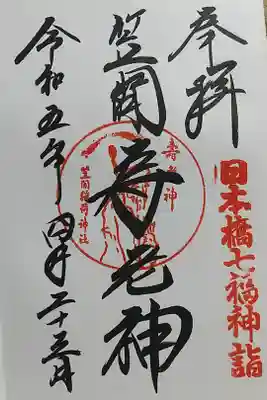 奉拝
日本橋七福神詣
笠間寿老神
寿老神
笠間稲荷神社
令和五年四月二十三日